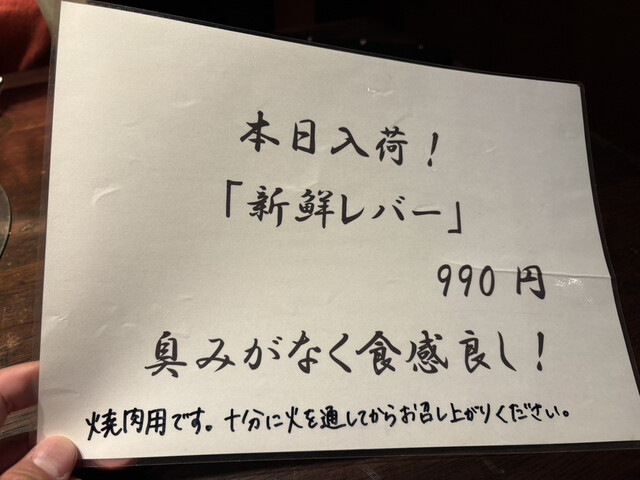 本日入荷！
「新鮮レバー」
990 円
臭みがなく食感良し！
焼肉用です。十分に火を通してからお召し上がりください。